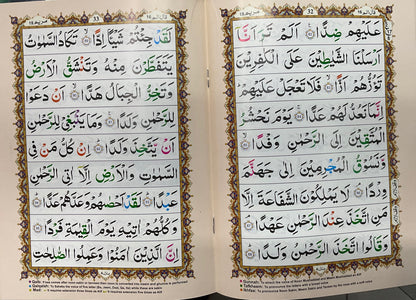 32
عَلَيْهِمْ ضِدًّا اَلَمْ تَرَ اَنَّآ
اَرْسَلْنَا الشَّيٰطِيْنَ عَلَى الْكٰفِرِيْنَ
تَؤُزُّهُمْ اَزًّا فَلَا تَعْجَلْ عَلَيْهِمْ
اِنَّمَا نَعُدُّ لَهُمْ عَدًّا يَوْمَ نَحْشُرُ
الْمُتَّقِيْنَ اِلَى الرَّحْمٰنِ وَفْدًا
وَّنَسُوْقُ الْمُجْرِمِيْنَ اِلٰى جَهَنَّمَ
وِرْدًا لَا يَمْلِكُوْنَ الشَّفَاعَةَ اِلَّا
مَنِ اتَّخَذَ عِنْدَ الرَّحْمٰنِ عَهْدًا
وَقَالُوا اتَّخَذَ الرَّحْمٰنُ وَلَدًا
33
لَقَدْ جِئْتُمْ شَيْـًٔا اِدًّا تَكَادُ السَّمٰوٰتُ
يَتَفَطَّرْنَ مِنْهُ وَتَنْشَقُّ الْاَرْضُ
وَتَخِرُّ الْجِبَالُ هَدًّا اَنْ دَعَوْا
لِلرَّحْمٰنِ وَلَدًا وَمَا يَنْۢبَغِيْ لِلرَّحْمٰنِ
اَنْ يَّتَّخِذَ وَلَدًا اِنْ كُلُّ مَنْ فِي
السَّمٰوٰتِ وَالْاَرْضِ اِلَّآ اٰتِي الرَّحْمٰنِ
عَبْدًا لَقَدْ اَحْصٰهُمْ وَعَدَّهُمْ عَدًّا
وَكُلُّهُمْ اٰتِيْهِ يَوْمَ الْقِيٰمَةِ فَرْدًا
اِنَّ الَّذِيْنَ اٰمَنُوْا وَعَمِلُوا الصّٰلِحٰتِ